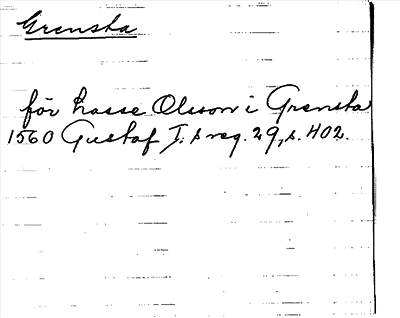 Grensta
för Lasse Olsson i Grensta
1560 Gustaf I:s reg. 29, s. 402.